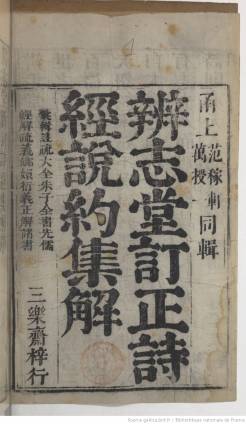 甬上
范稼軒
萬授一
同輯
辨志堂訂正詩
經說約集解
裒輯註疏大全朱子全書先儒
經解疏義嫏嬛衍義正解諸書
三樂齋梓行
4
Source gallica.bnf.fr / Bibliothèque nationale de France